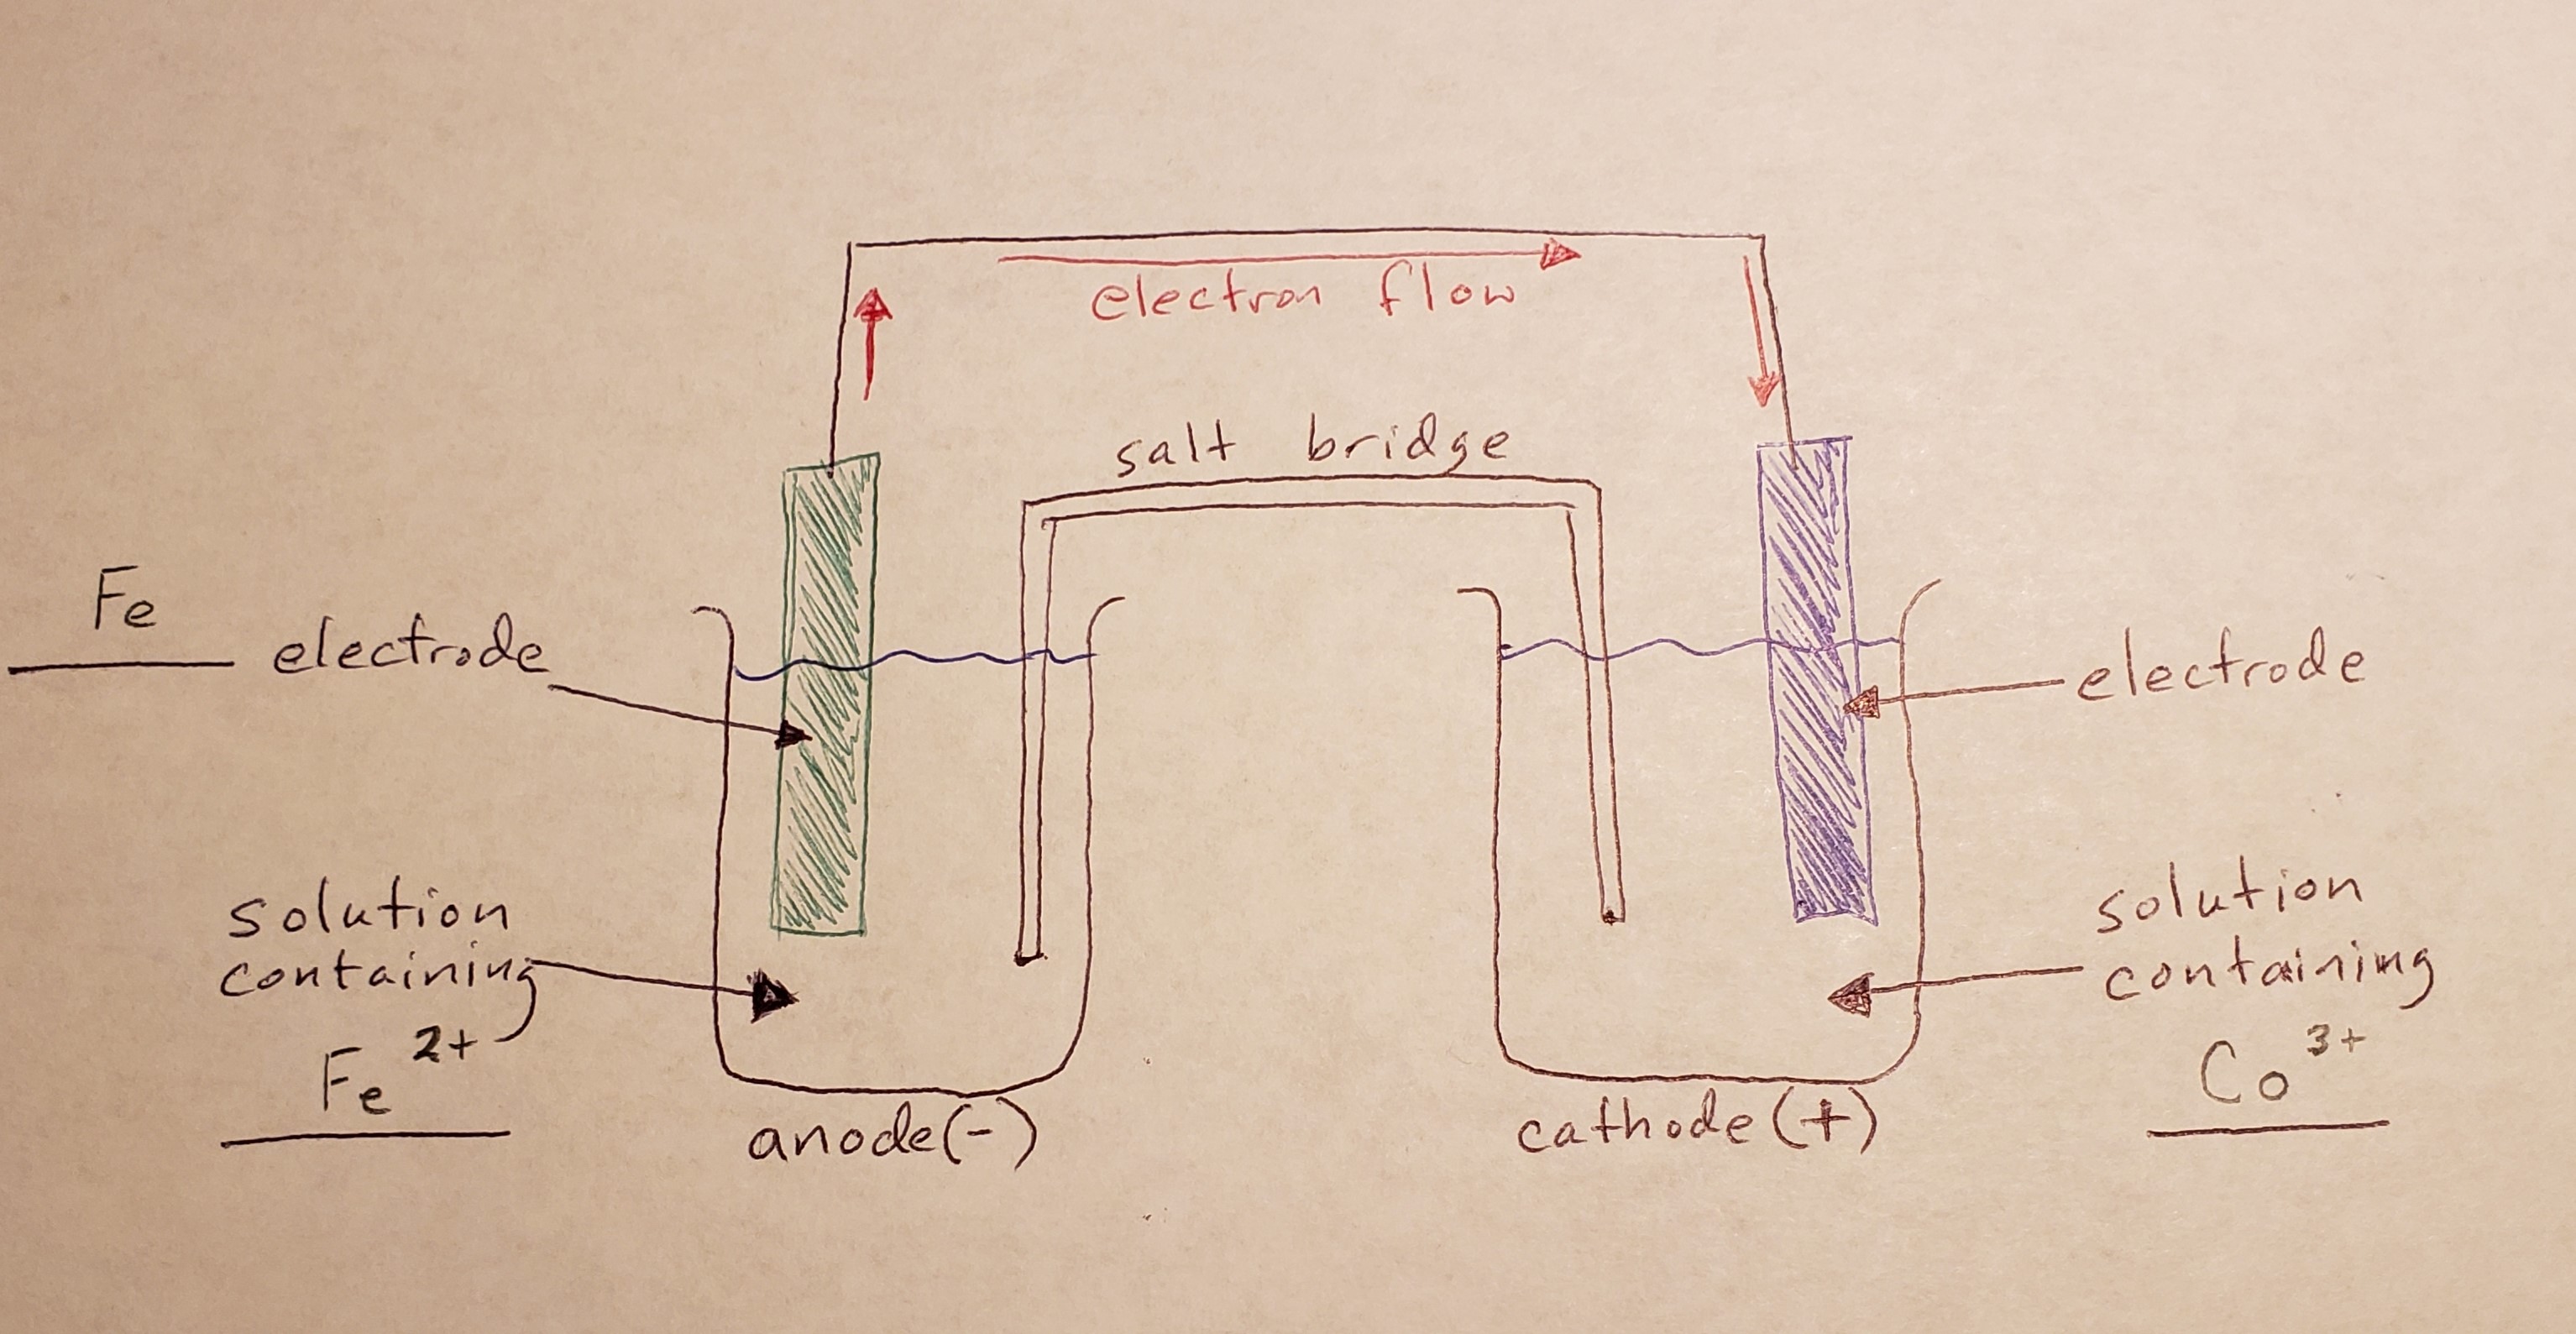 electron flow
salt bridge
Fe
electrode
electrode
solution
containing
Fe 2+
solution
containing
Co 3+
anode(-)
cathode(+)